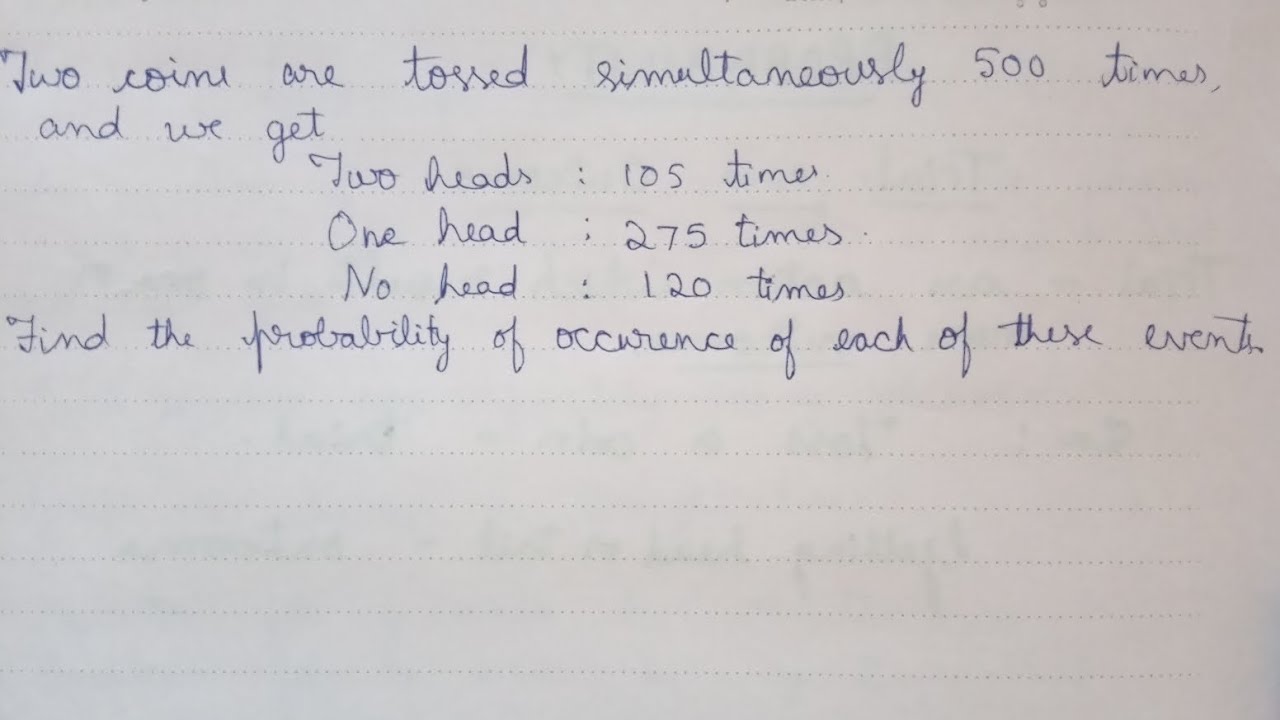 Two coins are tossed simultaneously 500 times,
and we get
Two heads : 105 times.
One head : 275 times.
No head : 120 times
Find the probability of occurence of each of these events.